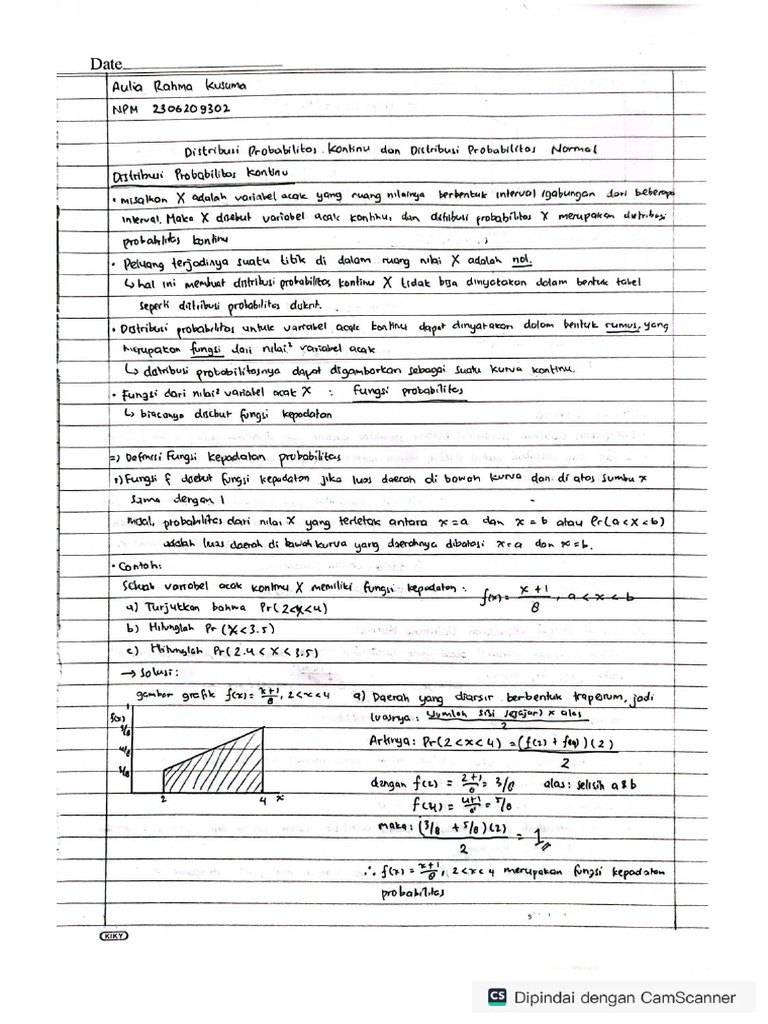 Date
Aulia Rahma Kusuma
NPM 2306209302
Distribusi Probabilitas Kontinu dan Distribusi Probabilitas Normal
Distribusi Probabilitas Kontinu
• misalkan X adalah variabel acak yang ruang nilainya berbentuk interval /gabungan dari beberapa
interval. Maka X disebut variabel acak kontinu, dan distribusi probabilitas X merupakan distribusi
probabilitas kontinu
• Peluang terjadinya suatu titik di dalam ruang nilai X adalah nol.
↳ hal ini membuat distribusi probabilitas kontinu X tidak bisa dinyatakan dalam bentuk tabel
seperti distribusi probabilitas diskrit.
• Distribusi probabilitas untuk variabel acak kontinu dapat dinyatakan dalam bentuk rumus, yang
merupakan fungsi dari nilai² variabel acak
↳ distribusi probabilitasnya dapat digambarkan sebagai suatu kurva kontinu.
• Fungsi dari nilai² variabel acak X : Fungsi probabilitas
↳ biasanya disebut fungsi kepadatan
=) Definisi Fungsi kepadatan probabilitas
1) Fungsi f disebut fungsi kepadatan jika luas daerah di bawah kurva dan di atas sumbu x
sama dengan 1
misal, probabilitas dari nilai X yang terletak antara x=a dan x=b atau Pr(a<X<b)
adalah luas daerah di bawah kurva yang daerahnya dibatasi x=a dan x=b.
• Contoh:
Sebuah variabel acak kontinu X memiliki fungsi kepadatan : f(x) = x+1/8, a<x<b
a) Tunjukkan bahwa Pr(2<X<4)
b) Hitunglah Pr (X<3.5)
c) Hitunglah Pr(2.4<X<3.5)
→ Solusi:
gambar grafik f(x)=x+1/8, 2<x<4
f(x)
5/8
4/8
3/8
2
4
x
a) Daerah yang diarsir berbentuk trapesium, jadi
luasnya : (Jumlah sisi sejajar) x alas/2
Artinya: Pr(2<x<4) = (f(2) + f(4))(2)/2
dengan f(2) = 2+1/8 = 3/8 alas: selisih a & b
f(4) = 4+1/8 = 5/8
maka: (3/8 + 5/8)(2)/2 = 1
∴ f(x) = x+1/8, 2<x<4 merupakan fungsi kepadatan
probabilitas
KIKY
CS Dipindai dengan CamScanner